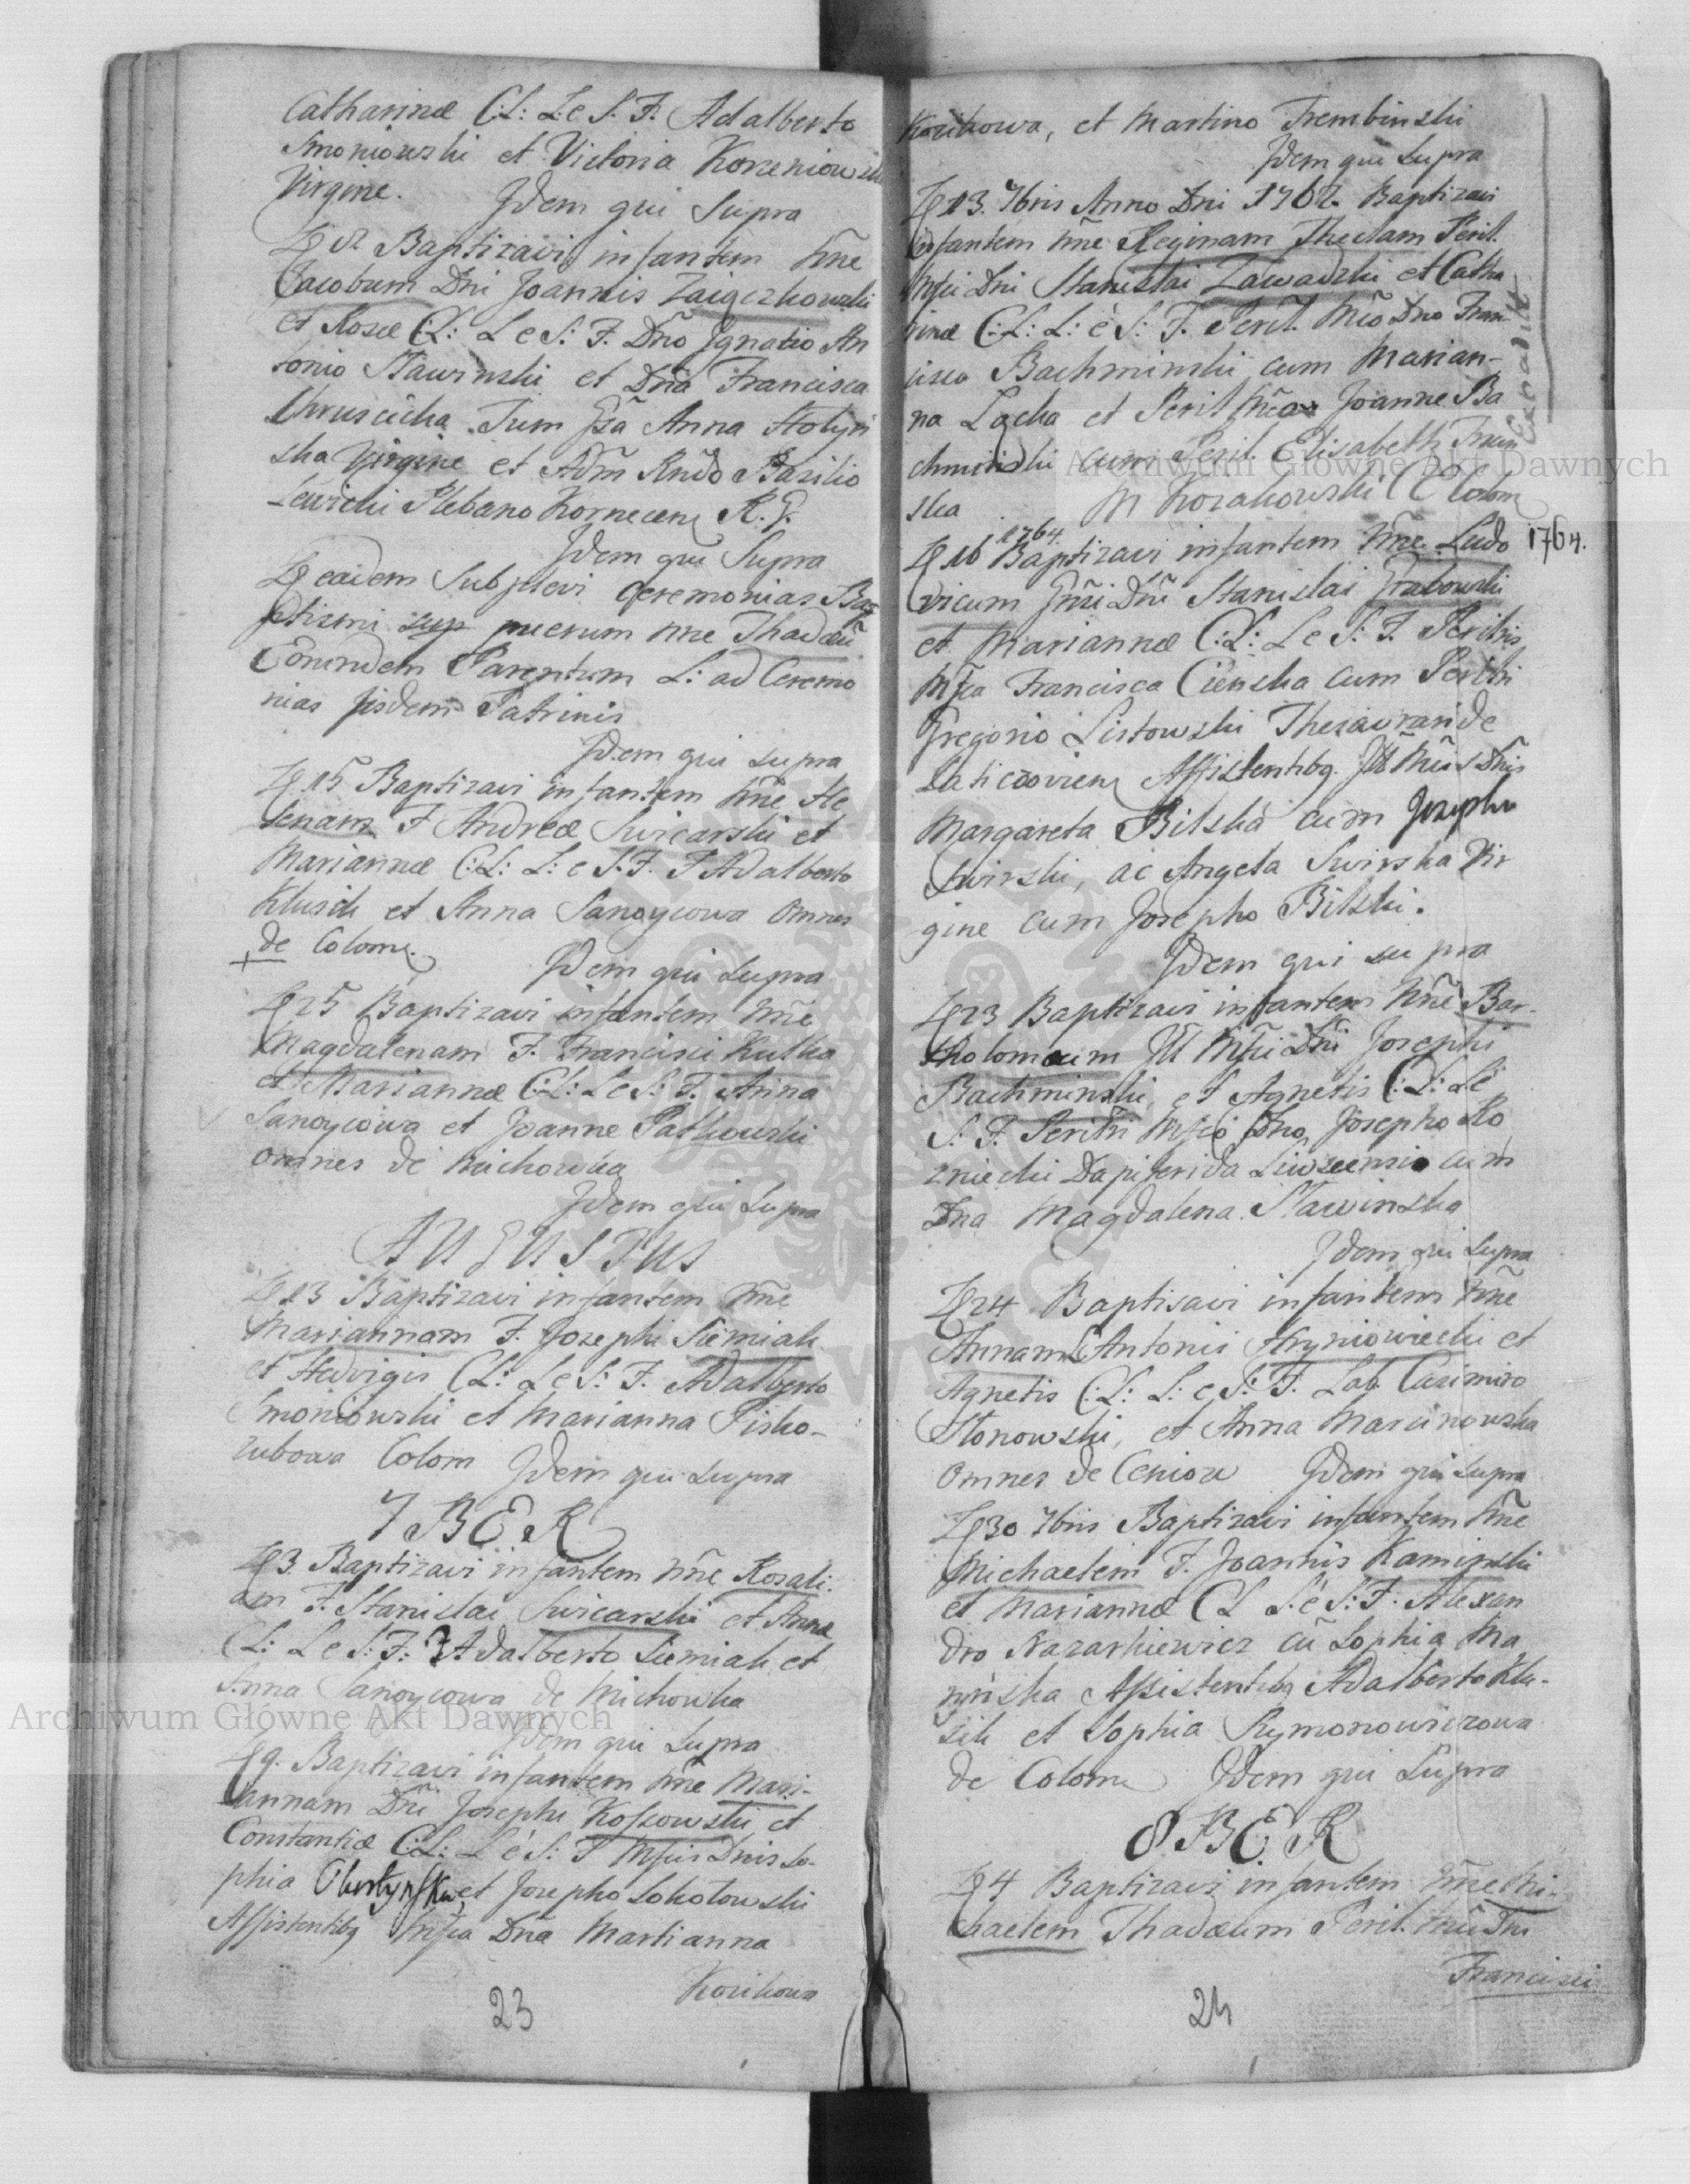 Catharinæ C:L: L:e S. F. Adalberto
Smoniowski et Victoria Korzeniowska
Virgine. Jdem qui Supra
Baptizavi infantem nne
Jacobum Dni Joannis Zaigczkowski
et Rosæ C:L: L e S: F. Dno Jgnatio An
tonio Stawinski et Dna Francisca
Chruscicka. Tum Anna Hołyn
ska Virgine et Adm Rndo Basilio
Lewicki Plebano Kornecen R. G.
Jdem qui Supra
eadem Suplevi Ceremonias Bap
ptismi sup puerum nne Thadæu
Eorundem Parentum L: ad Ceremo
nias jisdem Patrinis
Jdem qui supra
15 Baptizavi infantem nne He
lenam F Andreæ Swicarski et
Mariannæ C:L: L: e S.F. F Adalberto
Klusik et Anna Sanoycowa Omnes
de Colom.
Jdem qui Supra
25 Baptizavi infantem nne
Magdalenam F. Francisci Kutka
et Mariannæ C:L: L e S: F. Anna
Sanoycowa et Joanne Patkowski
omnes de Michowka
Jdem qui Supra
AUGUSTUS
13 Baptizavi infantem nne
Mariannam F. Josephi Siemiak
et Hedvigis C:L: L e S: F. Adalberto
Smoniowski et Marianna Pisko-
zubowa Colom Jdem qui Supra
7BER
3. Baptizavi infantem nne Rosali-
am F. Stanislai Swicarski et Annæ
C:L: L e S: F: Adalberto Siemiak et
Anna Sanoycowa de Michowka
Archiwum Główne Akt Dawnych
Jdem qui Supra
9. Baptizavi infantem nne Mari-
annam Dni Josephi Kossowski et
Constantiæ C:L: L e S: F Mfcis Dnis So-
phia et Josepho Sokołowski
Assistentibq Mfca Dna Martianna
Kozikowa
23
Kozikowa, et Martino Trembinski
Jdem qui Supra
13. 7bris Anno Dni 1762. Baptizavi
infantem nne Reginam Theclam Peril.
Mfci Dni Stanislai Zawadzki et Catha
rinæ C:L: L: e S: F. Peril. Mfco Dno Fran-
cisco Bachminski cum Marian-
na Lacka et Peril Joanne Ba
chminski cum Peril. Elisabeth Tran
Archiwum Główne Akt Dawnych
ska M Kozakowski C Colom
1764.
16 Baptizavi infantem nne Ludo
1764.
vicum Gnsi Dni Stanislai Grabowski
et Mariannæ C:L: L e S: F. Perilris
Mfca Francisca Cienska cum Perilri
Gregorio Listowski Thesauraride
Laticzovien Assistentibq. Jll Mfcis Dnis
Margareta Bilska cum Josepho
Swirski, ac Angela Swirska Vir
gine cum Josepho Bilski.
Jdem qui su pra
23 Baptizavi infantem nne Bar-
tholomæum Jll Mfci Dni Josephi
Bachminski, et Agnetis C:L: L e
S: F. Perilri Mfco Dno Josepho Ro
zniecki Dapiferida Liwscensio cum
Dna Magdalena Stawinska
Jdem qui Supra
24 Baptisavi infantem nne
Annam Antonii Hryniowiecki et
Agnetis C:L: L: e S: F. Lab Casimiro
Słonowski, et Anna Marcinowska
omnes de Ceniow Jdem qui Supra
30 7bris Baptizavi infantem nne
Michaelem F. Joannis Kaminski
et Mariannæ C L L e S: F. Alexan
dro Nazarkiewicz cu Sophia Ma
ninska Assistentibq Adalberto Klu-
sik et Sophia Szymonowiczowa
de Colom Jdem qui Supra
8BER
4 Baptizavi infantem nne Mi-
chaelem Thadæum Peril. Mfci Dni
Francisci
24